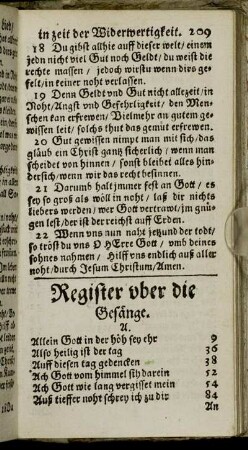 in zeit der Widerwertigkeit. 209
18 Du gibst allhie auff dieser welt / einem
jedn nicht viel Gut noch Geldt / du weist die
rechte massen / jedoch wirstu wenn dirs ge-
felt / in keiner noht verlassen.
19 Denn Geldt vnd Gut nicht allezeit / in
Noht / Angst vnd Gefehrligkeit / den Men-
schen kan erfrewen / Vielmehr an gutem ge-
wissen leit / solchs thut das gemüt erfrewen.
20 Gut gewissen nimpt man mit sich / das
gläub ein Christ gantz sicherlich / wenn man
scheidet von hinnen / sonst bleibet alles hin-
dersich / wenn wir das recht besinnen.
21 Darumb halt jmmer fest an Gott / es
sey so groß als wöll in noht / laß dir nichts
liebers werden / wer Gott vertrawt / jm gnü-
gen lest / der ist der reichst auff Erden.
22 Wenn vns nun naht jetzund der todt /
so tröst du vns O HErre Gott / vmb deines
sohnes nahmen / Hilff vns endlich auß aller
noht / durch Jesum Christum / Amen.
Register vber die
Gesänge.
A.
Allein Gott in der höh sey ehr 9
Also heilig ist der tag 36
Auff diesen tag gedencken 38
Ach Gott vom himmel sih darein 52
Ach Gott wie lang vergissest mein 54
Auß tieffer noht schrey ich zu dir 84
An